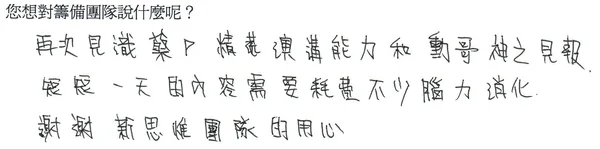 您想對籌備團隊說什麼呢？
再次見識藥P 精彩演講能力和 動哥 神之見報.
短短一天的內容需要耗費不少腦力消化.
謝謝 新思惟團隊的用心